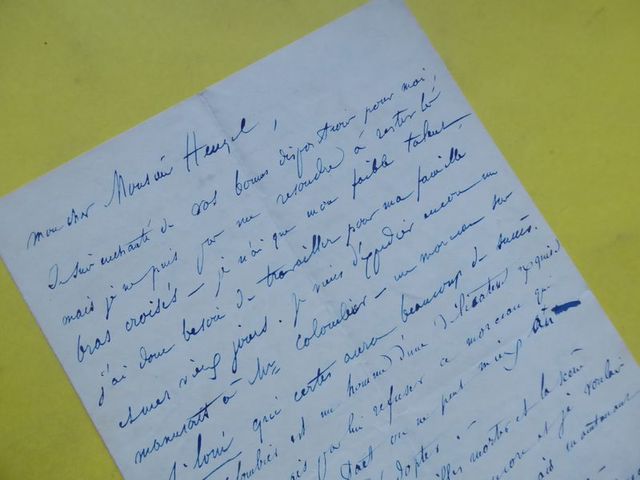 mon cher Monsieur Heugel,
Je suis enchanté de vos bonnes dispositions pour moi,
mais je ne puis pas me résoudre à rester les
bras croisés – je n'ai que mon faible talent
j'ai donc besoin de travailler pour ma famille
et mes vieux jours. Je viens d'expédier encore un
manuscrit à Mr Colombier – un morceau sur
qui certes aura beaucoup de succès.
est un homme d'une délicatesse exquise
lui refuser ce morceau qui
on ne peut mieux
mortes et la
encore et je voulais
maintenant